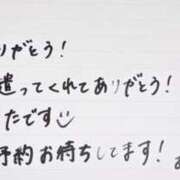 りがとう！
遣ってくれてありがとう！
たです
予約お待ちしてます！